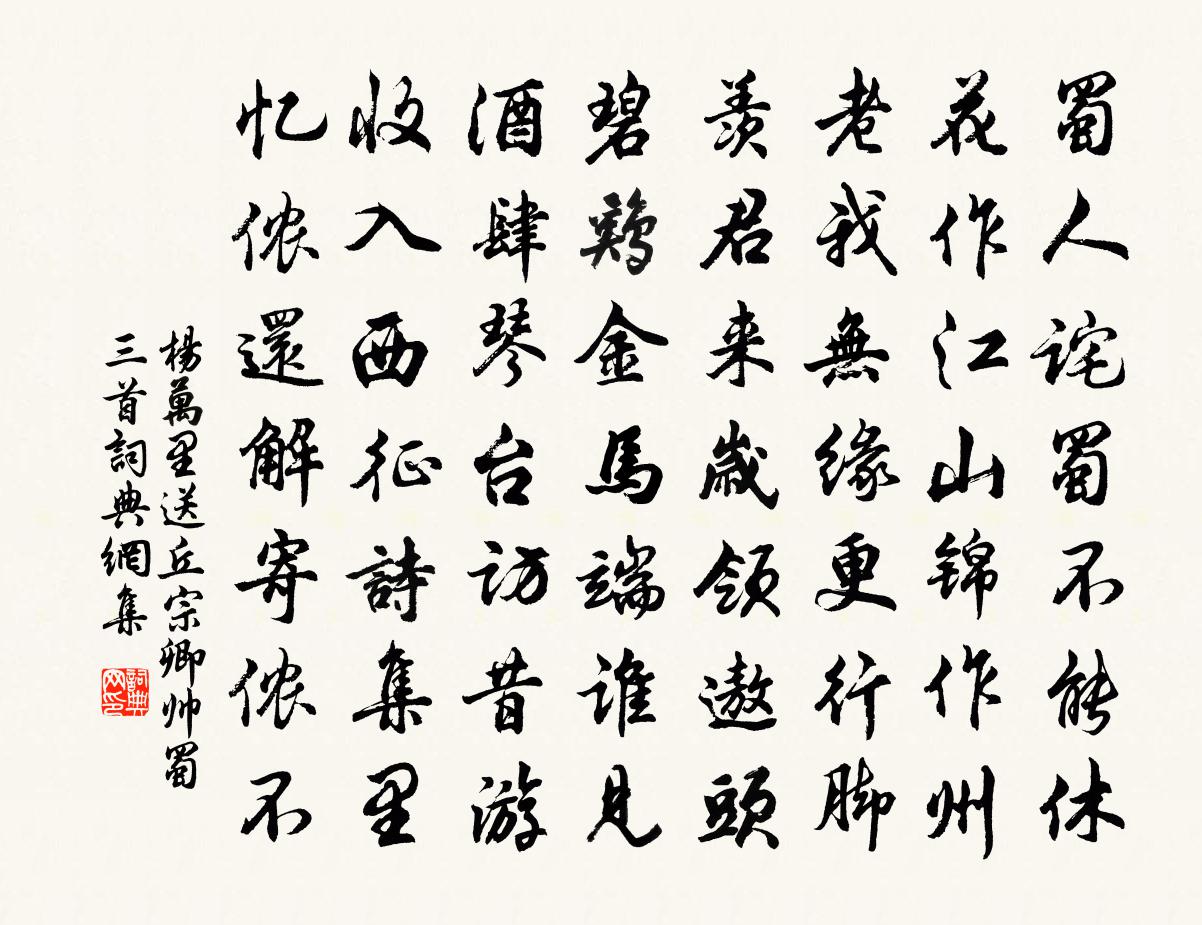 蜀人詫蜀不能休
花作江山锦作州
老我無缘更行脚
羡君来歳领遨頭
碧鷄金馬端谁見
酒肆琴台访昔游
收入西征詩集里
忆侬還解寄侬不
楊萬里送丘宗卿帅蜀
三首詞典網集
詞典网印